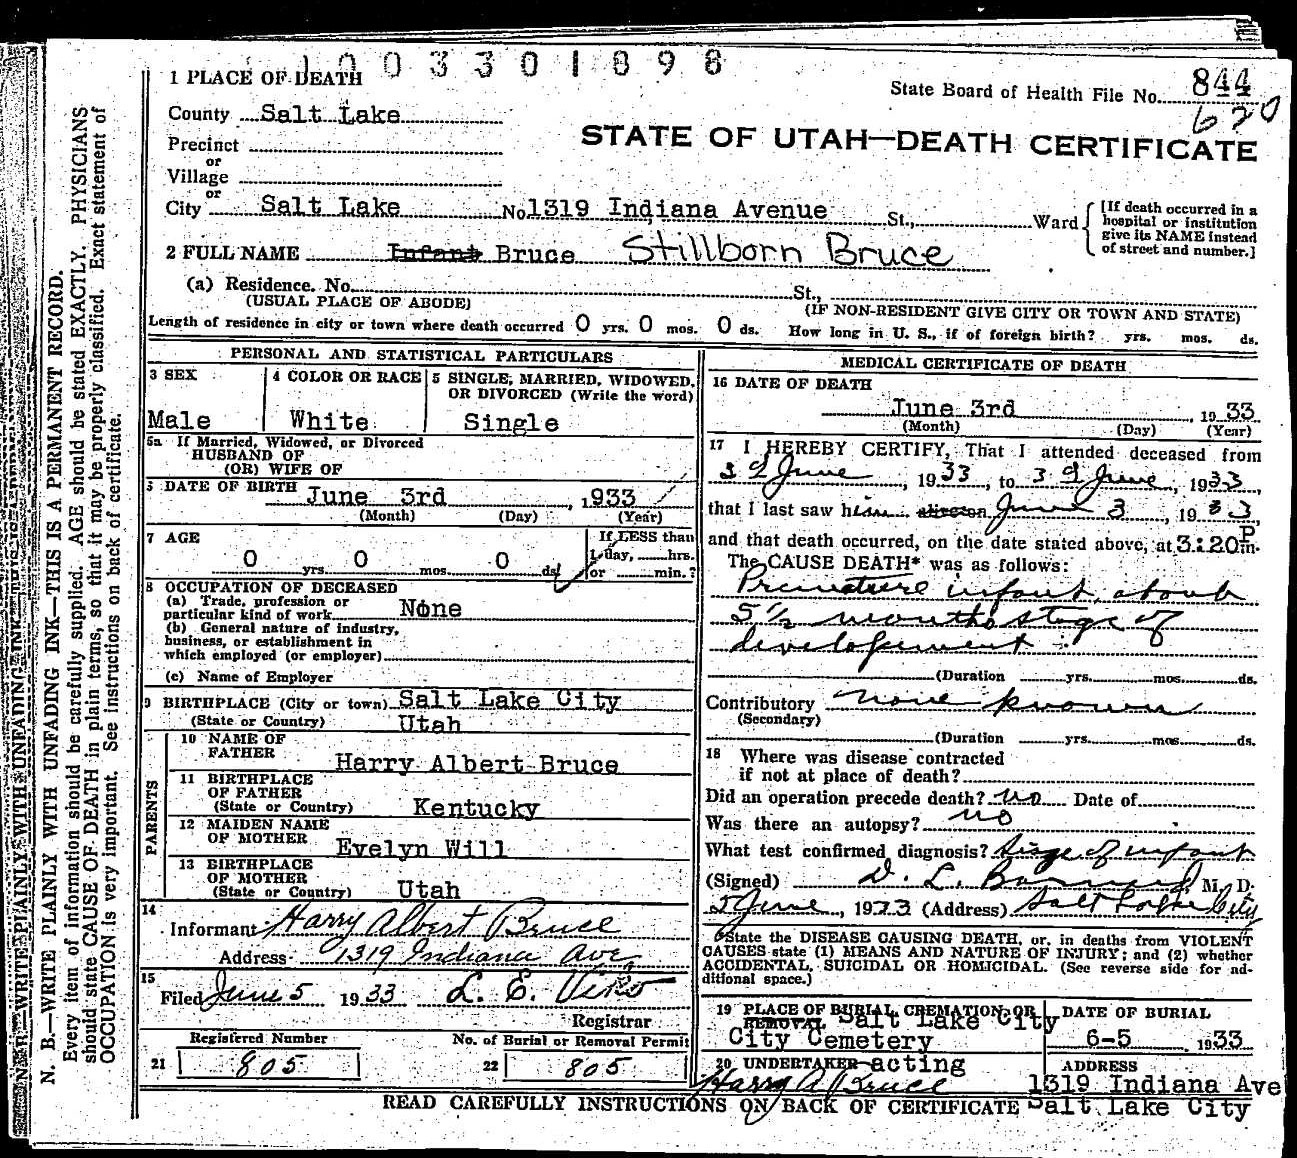 1003301898
1 PLACE OF DEATH
State Board of Health File No. 844
620
County Salt Lake
STATE OF UTAH—DEATH CERTIFICATE
Precinct
or
Village
or
City Salt Lake No 1319 Indiana Avenue St., Ward
[If death occurred in a
hospital or institution
give its NAME instead
of street and number.]
2 FULL NAME Infant Bruce Stillborn Bruce
(a) Residence. No. St.,
(USUAL PLACE OF ABODE) (IF NON-RESIDENT GIVE CITY OR TOWN AND STATE)
Length of residence in city or town where death occurred 0 yrs. 0 mos. 0 ds. How long in U. S., if of foreign birth? yrs. mos. ds.
PERSONAL AND STATISTICAL PARTICULARS
3 SEX 4 COLOR OR RACE 5 SINGLE, MARRIED, WIDOWED,
OR DIVORCED (Write the word)
Male White Single
5a If Married, Widowed, or Divorced
HUSBAND OF
(OR) WIFE OF
DATE OF BIRTH June 3rd , 1933
(Month) (Day) (Year)
7 AGE If LESS than
0 yrs. 0 mos. 0 ds. 1 day, hrs.
or min.?
8 OCCUPATION OF DECEASED
(a) Trade, profession or
particular kind of work None
(b) General nature of industry,
business, or establishment in
which employed (or employer)
(c) Name of Employer
9 BIRTHPLACE (City or town) Salt Lake City
(State or Country) Utah
PARENTS
10 NAME OF
FATHER Harry Albert Bruce
11 BIRTHPLACE
OF FATHER
(State or Country) Kentucky
12 MAIDEN NAME
OF MOTHER Evelyn Will
13 BIRTHPLACE
OF MOTHER
(State or Country) Utah
14
Informant Harry Albert Bruce
Address 1319 Indiana Ave
15
Filed June 5 1933 L. E. Viko
Registrar
Registered Number No. of Burial or Removal Permit
21 805 22 805
MEDICAL CERTIFICATE OF DEATH
16 DATE OF DEATH
June 3rd , 1933
(Month) (Day) (Year)
17 I HEREBY CERTIFY, That I attended deceased from
3d June , 1933 , to 3d June , 1933,
that I last saw him June 3 , 1933,
and that death occurred, on the date stated above, at 3:20 P m.
The CAUSE DEATH* was as follows:
Premature infant, about
5 1/2 months stage of
development
(Duration yrs. mos. ds.
Contributory none known
(Secondary)
(Duration yrs. mos. ds.
18 Where was disease contracted
if not at place of death?
Did an operation precede death? no Date of
Was there an autopsy? no
What test confirmed diagnosis? Size of infant
(Signed) D. L. M. D.
5 June , 1933 (Address) Salt Lake City
*State the DISEASE CAUSING DEATH, or, in deaths from VIOLENT
CAUSES state (1) MEANS AND NATURE OF INJURY; and (2) whether
ACCIDENTAL, SUICIDAL OR HOMICIDAL. (See reverse side for ad-
ditional space.)
19 PLACE OF BURIAL, CREMATION, OR
REMOVAL Salt Lake City
City Cemetery
DATE OF BURIAL
6-5 , 1933
20 UNDERTAKER acting
Harry A Bruce
ADDRESS
1319 Indiana Ave
Salt Lake City
READ CAREFULLY INSTRUCTIONS ON BACK OF CERTIFICATE
N. B.—WRITE PLAINLY WITH UNFADING INK—THIS IS A PERMANENT RECORD.
Every item of information should be carefully supplied. AGE should be stated EXACTLY. PHYSICIANS
should state CAUSE OF DEATH in plain terms, so that it may be properly classified. Exact statement of
OCCUPATION is very important. See instructions on back of certificate.